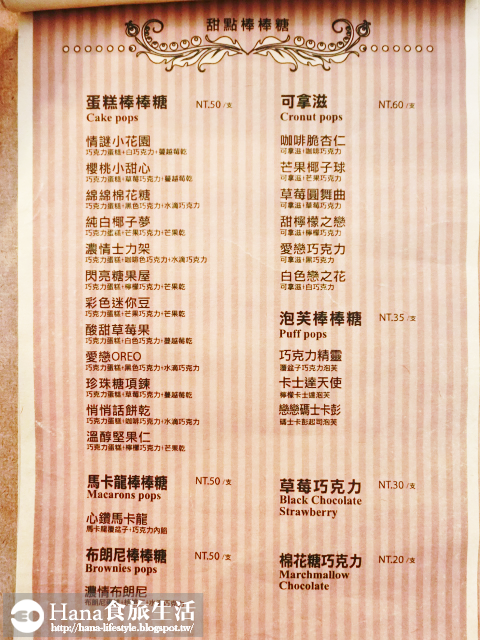 甜點棒棒糖
蛋糕棒棒糖 NT.50/支
Cake pops
情謎小花園
巧克力蛋糕+白巧克力+蔓越莓乾
櫻桃小甜心
巧克力蛋糕+草莓巧克力+蔓越莓乾
綿綿棉花糖
巧克力蛋糕+黑色巧克力+水滴巧克力
純白椰子夢
巧克力蛋糕+芒果巧克力+芒果乾
濃情士力架
巧克力蛋糕+咖啡色巧克力+水滴巧克力
閃亮糖果屋
巧克力蛋糕+檸檬巧克力+芒果乾
彩色迷你豆
巧克力蛋糕+芒果巧克力+芒果乾
酸甜草莓果
巧克力蛋糕+白色巧克力+蔓越莓乾
愛戀OREO
巧克力蛋糕+黑色巧克力+水滴巧克力
珍珠糖項鍊
巧克力蛋糕+草莓巧克力+蔓越莓乾
悄悄話餅乾
巧克力蛋糕+咖啡巧克力+水滴巧克力
溫醇堅果仁
巧克力蛋糕+檸檬巧克力+芒果乾
馬卡龍棒棒糖 NT.50/支
Macarons pops
心鑽馬卡龍
馬卡龍覆盆子+巧克力內餡
布朗尼棒棒糖 NT.50/支
Brownies pops
濃情布朗尼
可拿滋 NT.60/支
Cronut pops
咖啡脆杏仁
可拿滋+咖啡巧克力
芒果椰子球
可拿滋+芒果巧克力
草莓圓舞曲
可拿滋+草莓巧克力
甜檸檬之戀
可拿滋+檸檬巧克力
愛戀巧克力
可拿滋+黑巧克力
白色戀之花
可拿滋+白巧克力
泡芙棒棒糖 NT.35/支
Puff pops
巧克力精靈
覆盆子巧克力泡芙
卡士達天使
檸檬卡士達泡芙
戀戀碼士卡彭
碼士卡彭起司泡芙
草莓巧克力 NT.30/支
Black Chocolate
Strawberry
棉花糖巧克力 NT.20/支
Marchmallow
Chocolate
Hana食旅生活
http://hana-lifestyle.blogspot.tw/